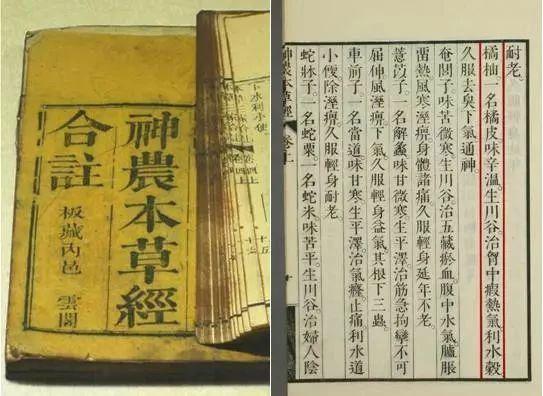 神農本草經
合註
板藏內邑 雲閣
下水利小便
耐老。
橘柚。一名橘皮味辛溫生川谷治胷中瘕熱氣利水穀
久服去臭下氣通神
奄閭子。味苦微寒生川谷治五藏瘀血腹中水氣臚脹
留熱風寒溼痹身體諸痛久服輕身延年不老。
薏苡子。一名解蠡味甘微寒生平澤治筋急拘攣不可
屈伸風溼痹下氣久服輕身益氣其根下三蟲。
車前子。一名當道味甘寒生平澤治氣癃止痛利水道
小便除溼痹久服輕身耐老
蛇牀子。一名蛇粟一名蛇米味苦平生川谷治婦人陰
神農本草經 卷上